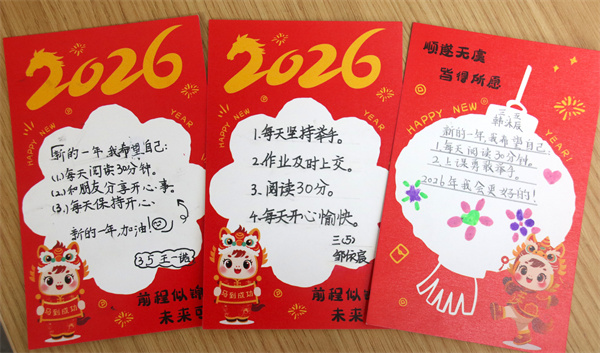 2026
HAPPY NEW YEAR
新的一年,我希望自己:
(1)每天阅读30分钟。
(2)和朋友分享开心事。
(3)每天保持开心。
新的一年,加油!
35王一
马到成功
前程似
未来
2026
HAPPY NEW YEAR
1.每天坚持举手。
2.作业及时上交。
3.阅读30分。
4.每天开心愉快。
三(5)
马到成功
前程似
未来
顺遂无虞
皆得所愿
三、5
新的一年,我希望自己
1.每天阅读30分钟。
2.上课勇敢举手。
2026年我会更好的!